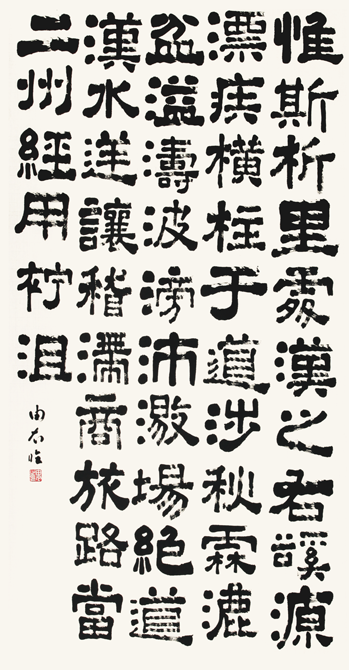 惟斯析里處漢之右谿源
漂疾橫柱于道涉秋霖漉
盆溢濤波滂沛激揚絕道
漢水逆讓稽滯商旅路當
二州經用柠沮